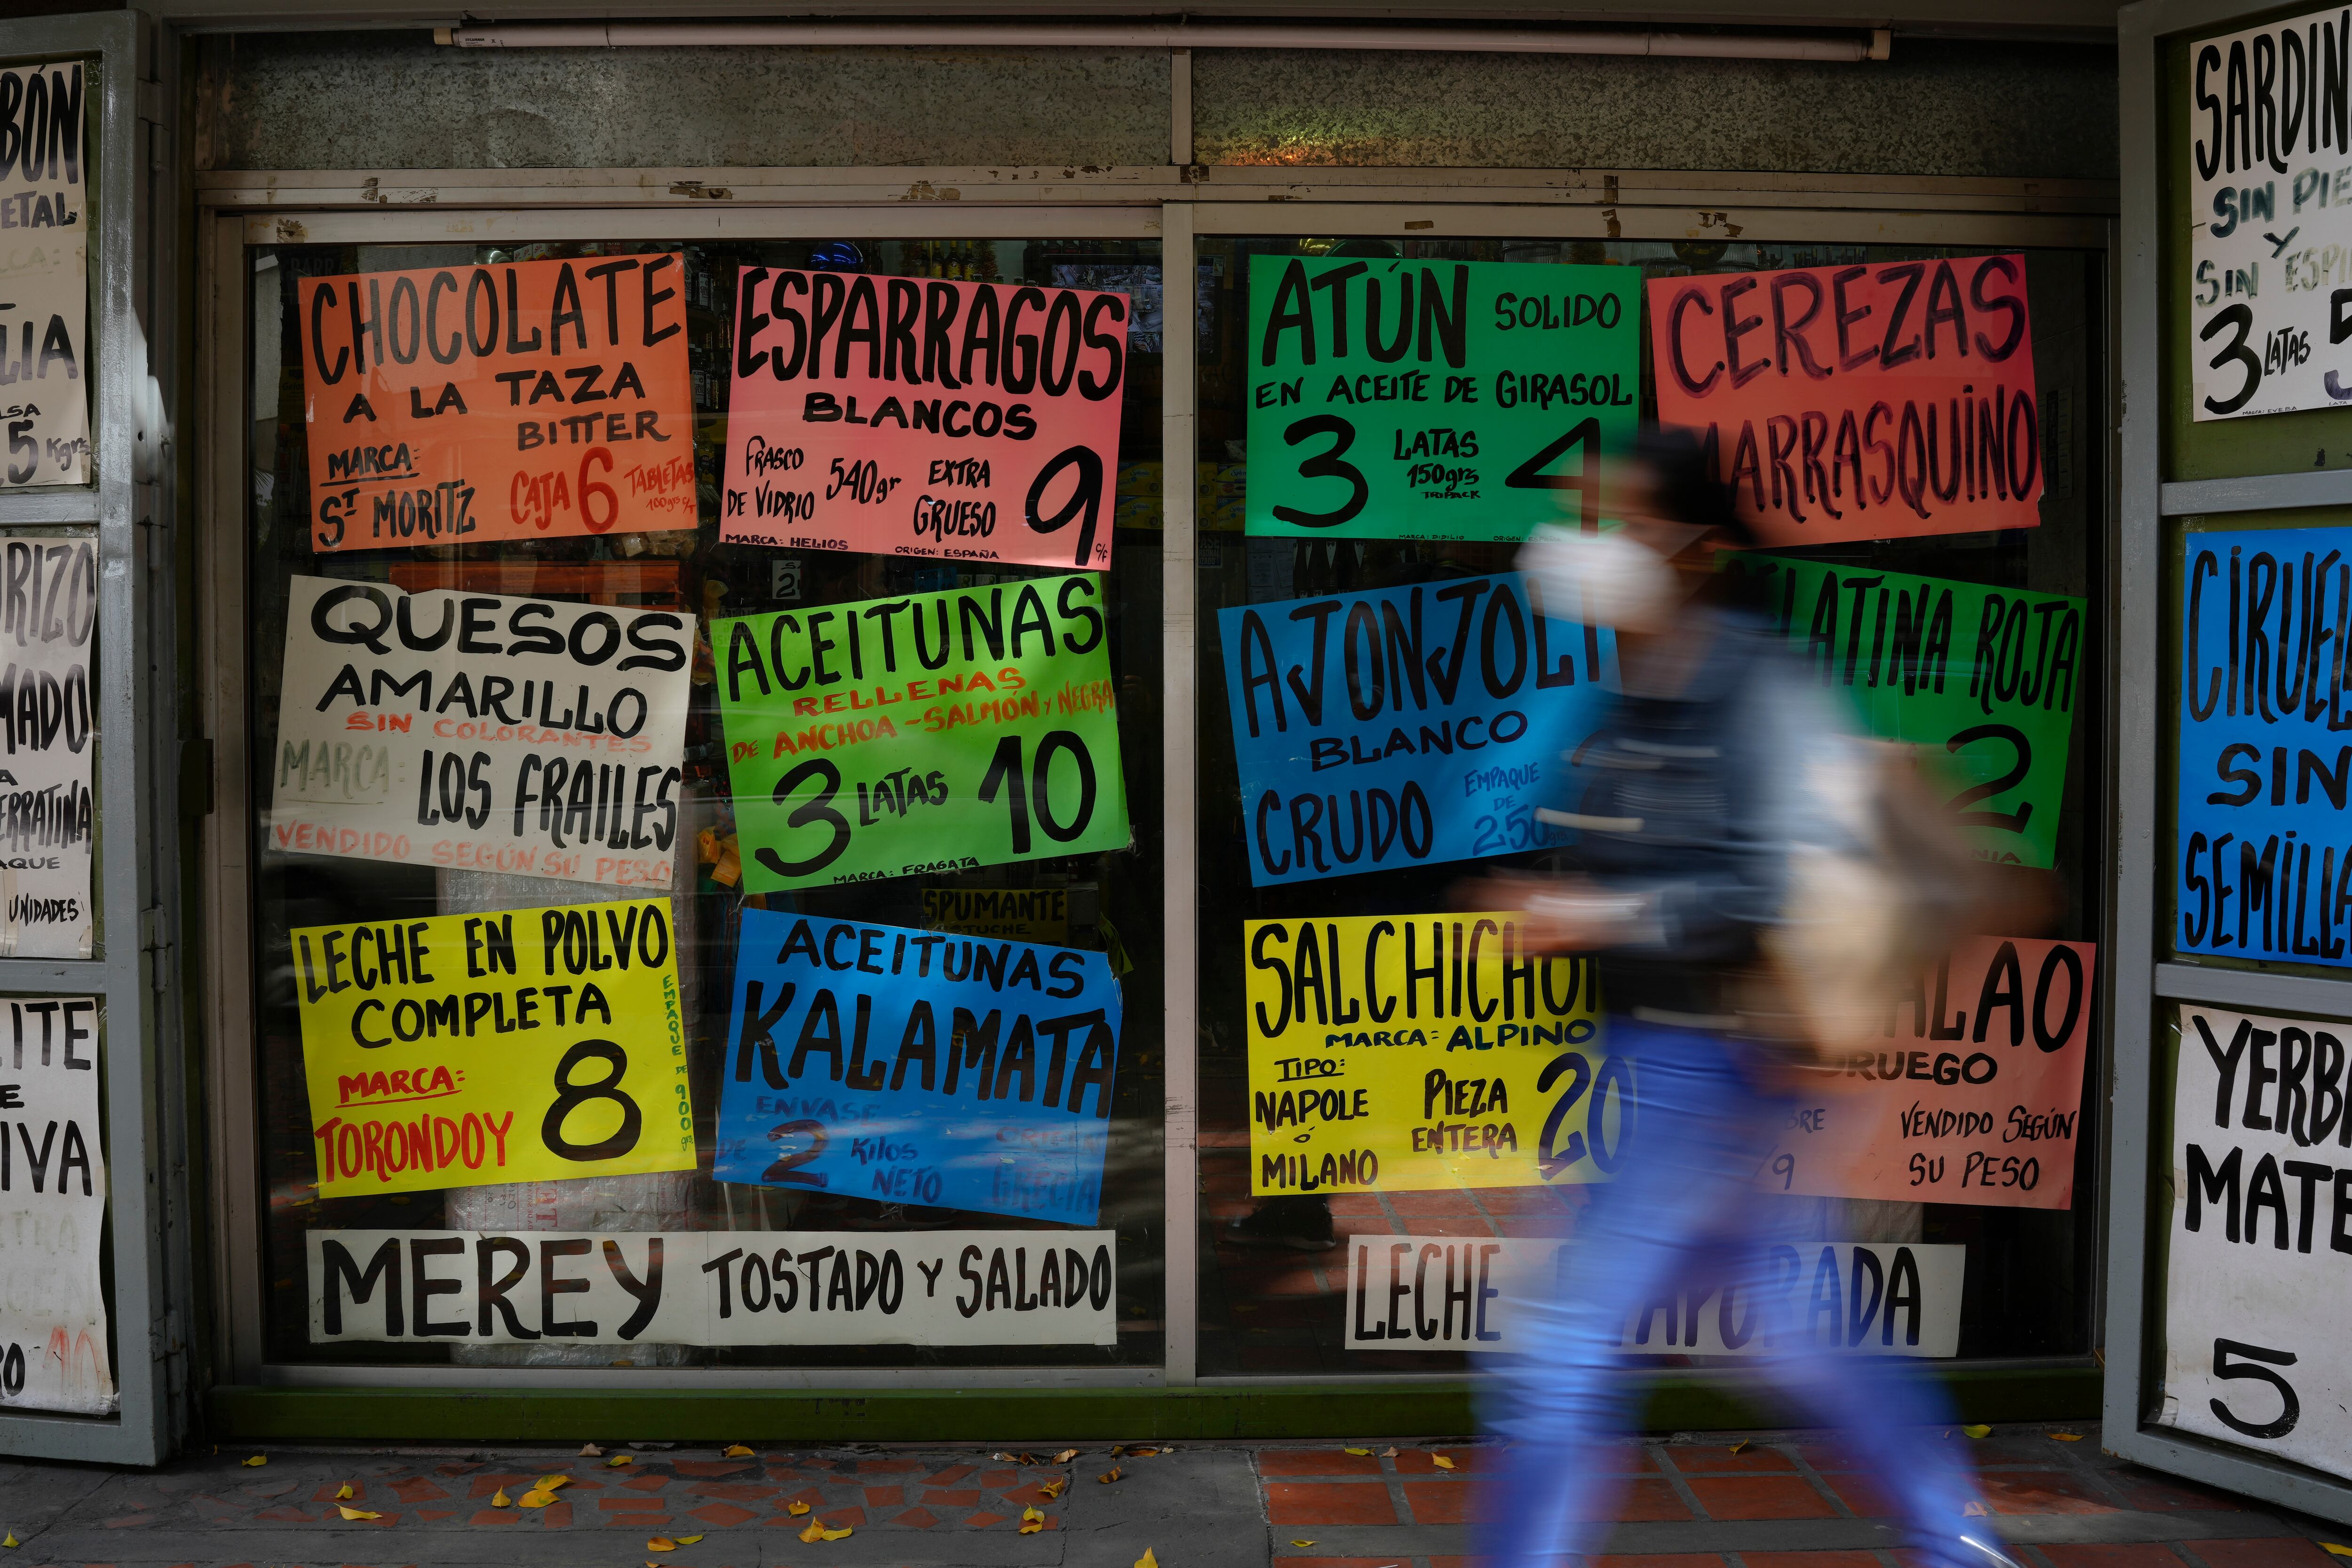 CHOCOLATE
A LA TAZA
BITTER
MARCA:
ST MORITZ
CAJA 6 TABLETAS
100grs c/T
ESPARRAGOS
BLANCOS
FRASCO
DE VIDRIO
540gr
EXTRA
GRUESO
9
c/F
MARCA: HELIOS
ORIGEN: ESPAÑA
QUESOS
AMARILLO
SIN COLORANTES
MARCA:
LOS FRAILES
VENDIDO SEGÚN SU PESO
ACEITUNAS
RELLENAS
DE ANCHOA-SALMÓN Y NEGRA
3 LATAS 10
MARCA: FRAGATA
LECHE EN POLVO
COMPLETA
MARCA:
TORONDOY
8
EMPAQUE DE 900grs
SPUMANTE
ACEITUNAS
KALAMATA
ENVASE
DE 2 Kilos
NETO
ORIGEN
GRECIA
MEREY TOSTADO Y SALADO
ATÚN SOLIDO
EN ACEITE DE GIRASOL
3 LATAS 4
150grs
TRIPACK
CEREZAS
MARRASQUINO
AJONJOLI
BLANCO
CRUDO
EMPAQUE
DE
250grs
LATINA ROJA
2
SALCHICHO
MARCA: ALPINO
TIPO:
NAPOLE
Ó
MILANO
PIEZA
ENTERA
20
ALAO
RUEGO
VENDIDO SEGÚN
SU PESO
LECHE
APORADA
BÓN
ETAL
LIA
5 Kgrs
ORIZO
MADO
ERRATINA
AQUE
UNIDADES
ITE
E
IVA
SARDIN
SIN PIE
Y
SIN ESPI
3 LATAS 5
CIRUEL
SIN
SEMILL
YERB
MATE
5